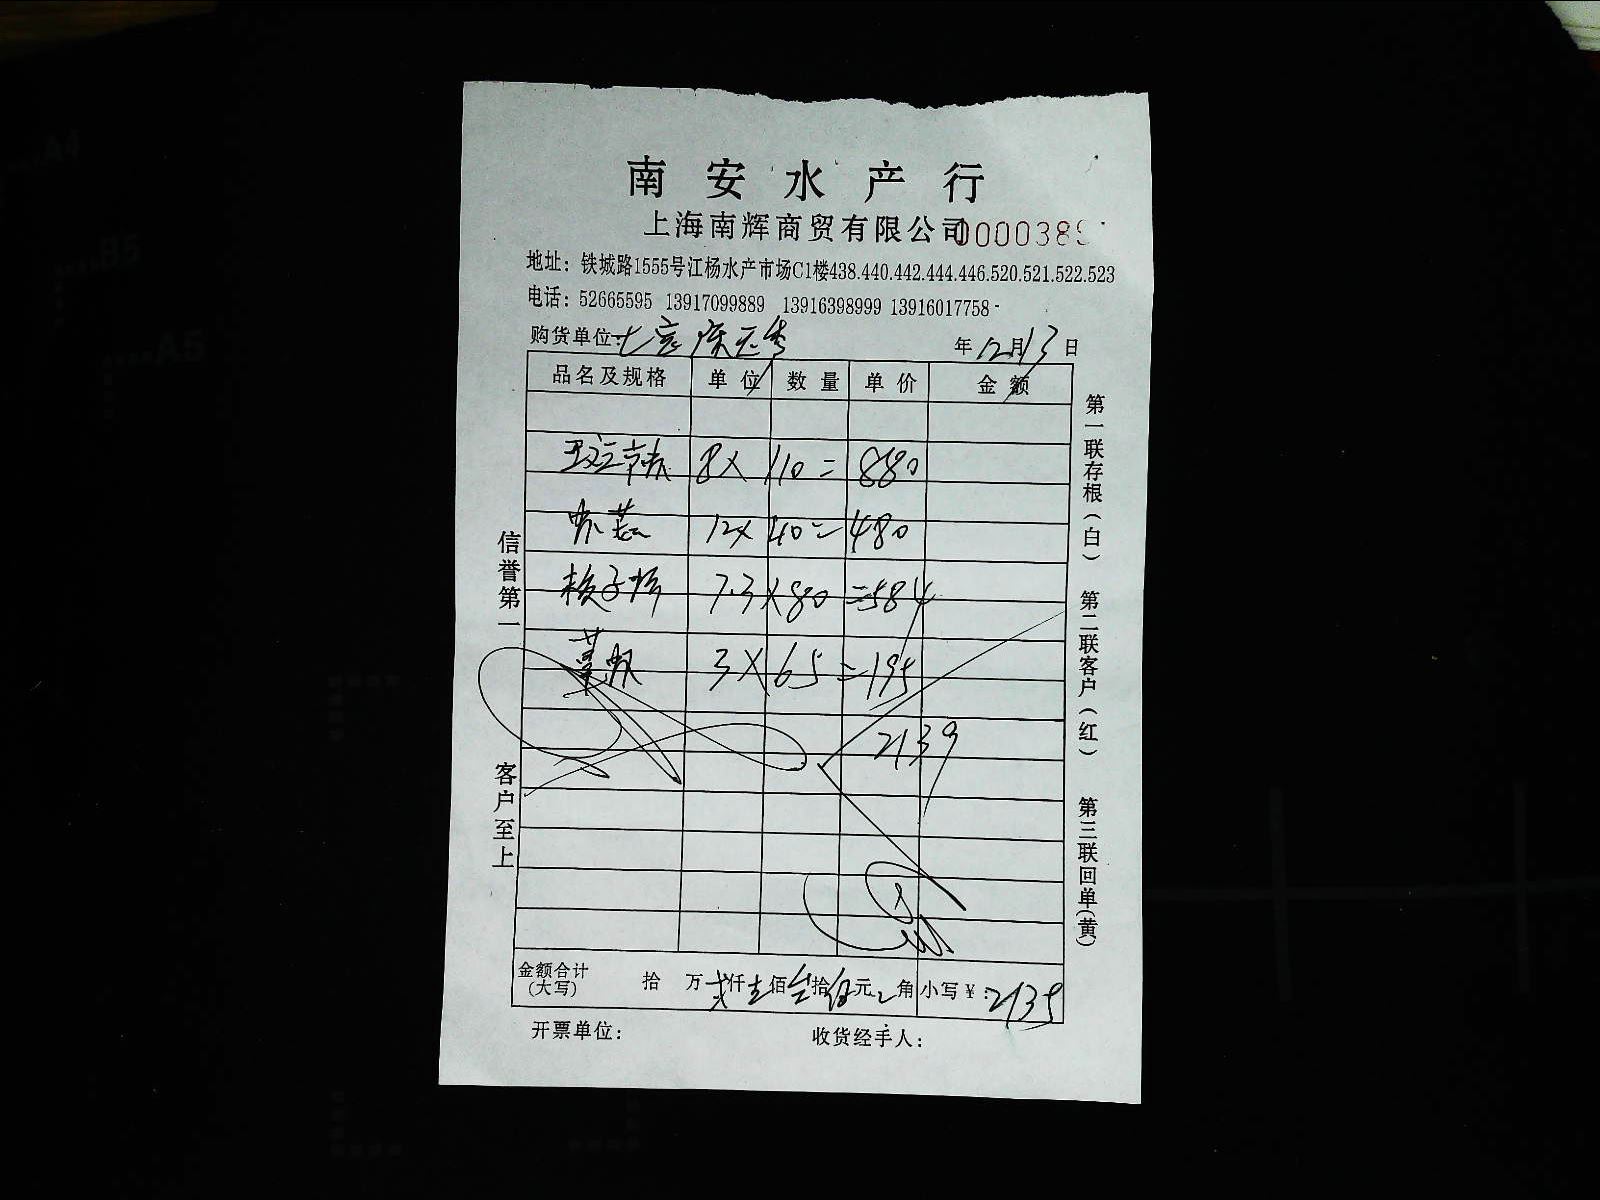 南安水产行
上海南辉商贸有限公司 0000389
地址：铁城路1555号江杨水产市场C1楼438.440.442.444.446.520.521.522.523
电话：52665595 13917099889 13916398999 13916017758
购货单位：
年12月13日
品名及规格 单位 数量 单价 金额
8 X 110 = 880
12 X 40 = 480
7.3 X 80 = 584
3 X 65 = 195
2139
金额合计(大写) 拾 万 贰仟壹佰叁拾伍元 角 小写￥：2135
开票单位： 收货经手人：
信誉第一 客户至上
第一联存根(白) 第二联客户(红) 第三联回单(黄)
A4
B5
A5